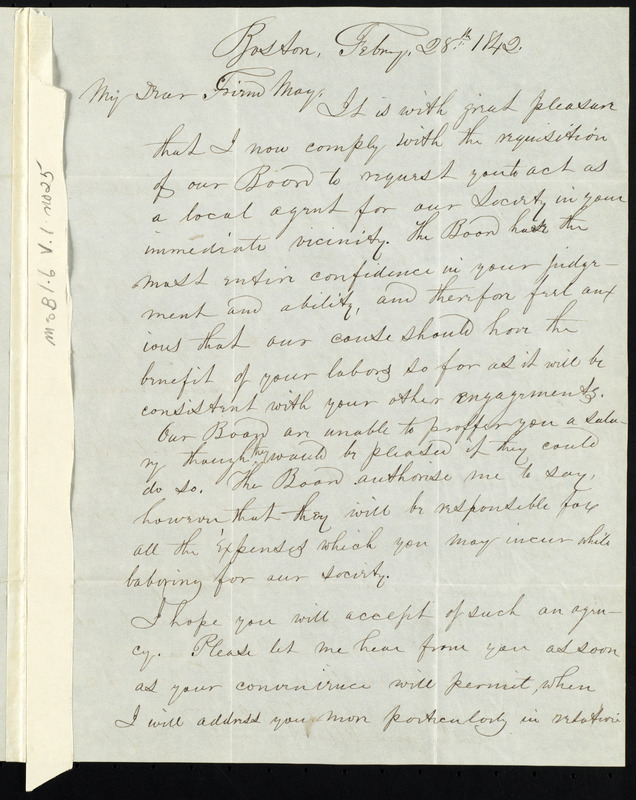 Boston, Febry. 28th. 1842.
My Dear Friend May,
It is with great pleasure
that I now comply with the requisition
of our Board to request you to act as
a local agent for our Society in your
immediate vicinity. The Board have the
most entire confidence in your judge-
ment and ability, and therefore feel anx
ious that our cause should have the
benefit of your labors so far as it will be
consistent with your other engagements.
Our Board are unable to proffer you a sala-
ry though they would be pleased if they could
do so. The Board authorise me to say,
however that they will be responsible for
all the expenses which you may incur while
laboring for our society.
I hope you will accept of such an agen-
cy. Please let me hear from you as soon
as your convenience will permit, when
I will address you more particularly in relation
Ms. B. 1. 6 v. 1. no. 5